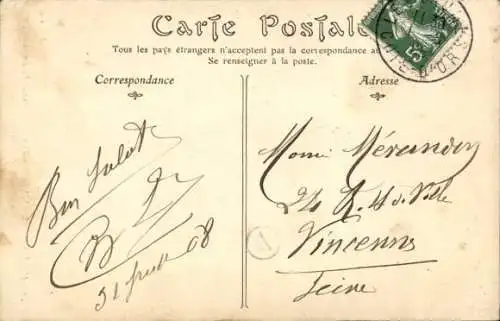 Carte Postale
Tous les pays étrangers n'acceptent pas la correspondance au
Se renseigner à la poste.
Correspondance
Adresse
Bon Salut
31 08
24 R. H. de Ville
Vincennes
Seine
5
ORSAY